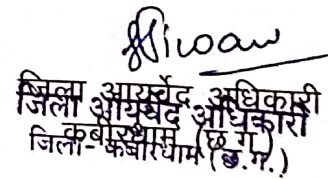 जिला आयुर्वेद अधिकारी
जिला आयुर्वेद अधिकारी
कबीरधाम (छ.ग.)
जिला - कबीरधाम (छ.ग.)